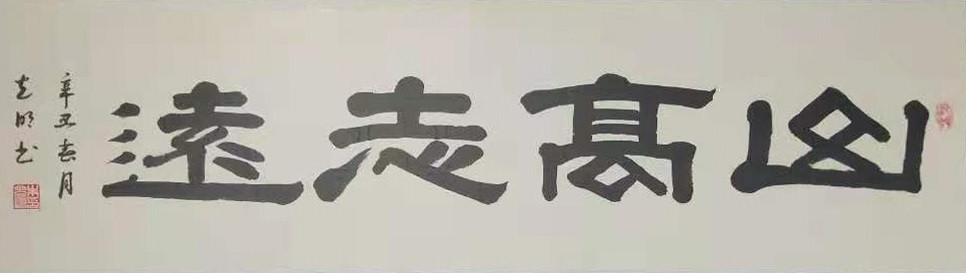 山高志遠
辛丑春月
志明书